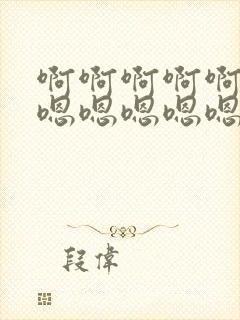 啊啊啊啊啊
嗯嗯嗯嗯嗯
段偉